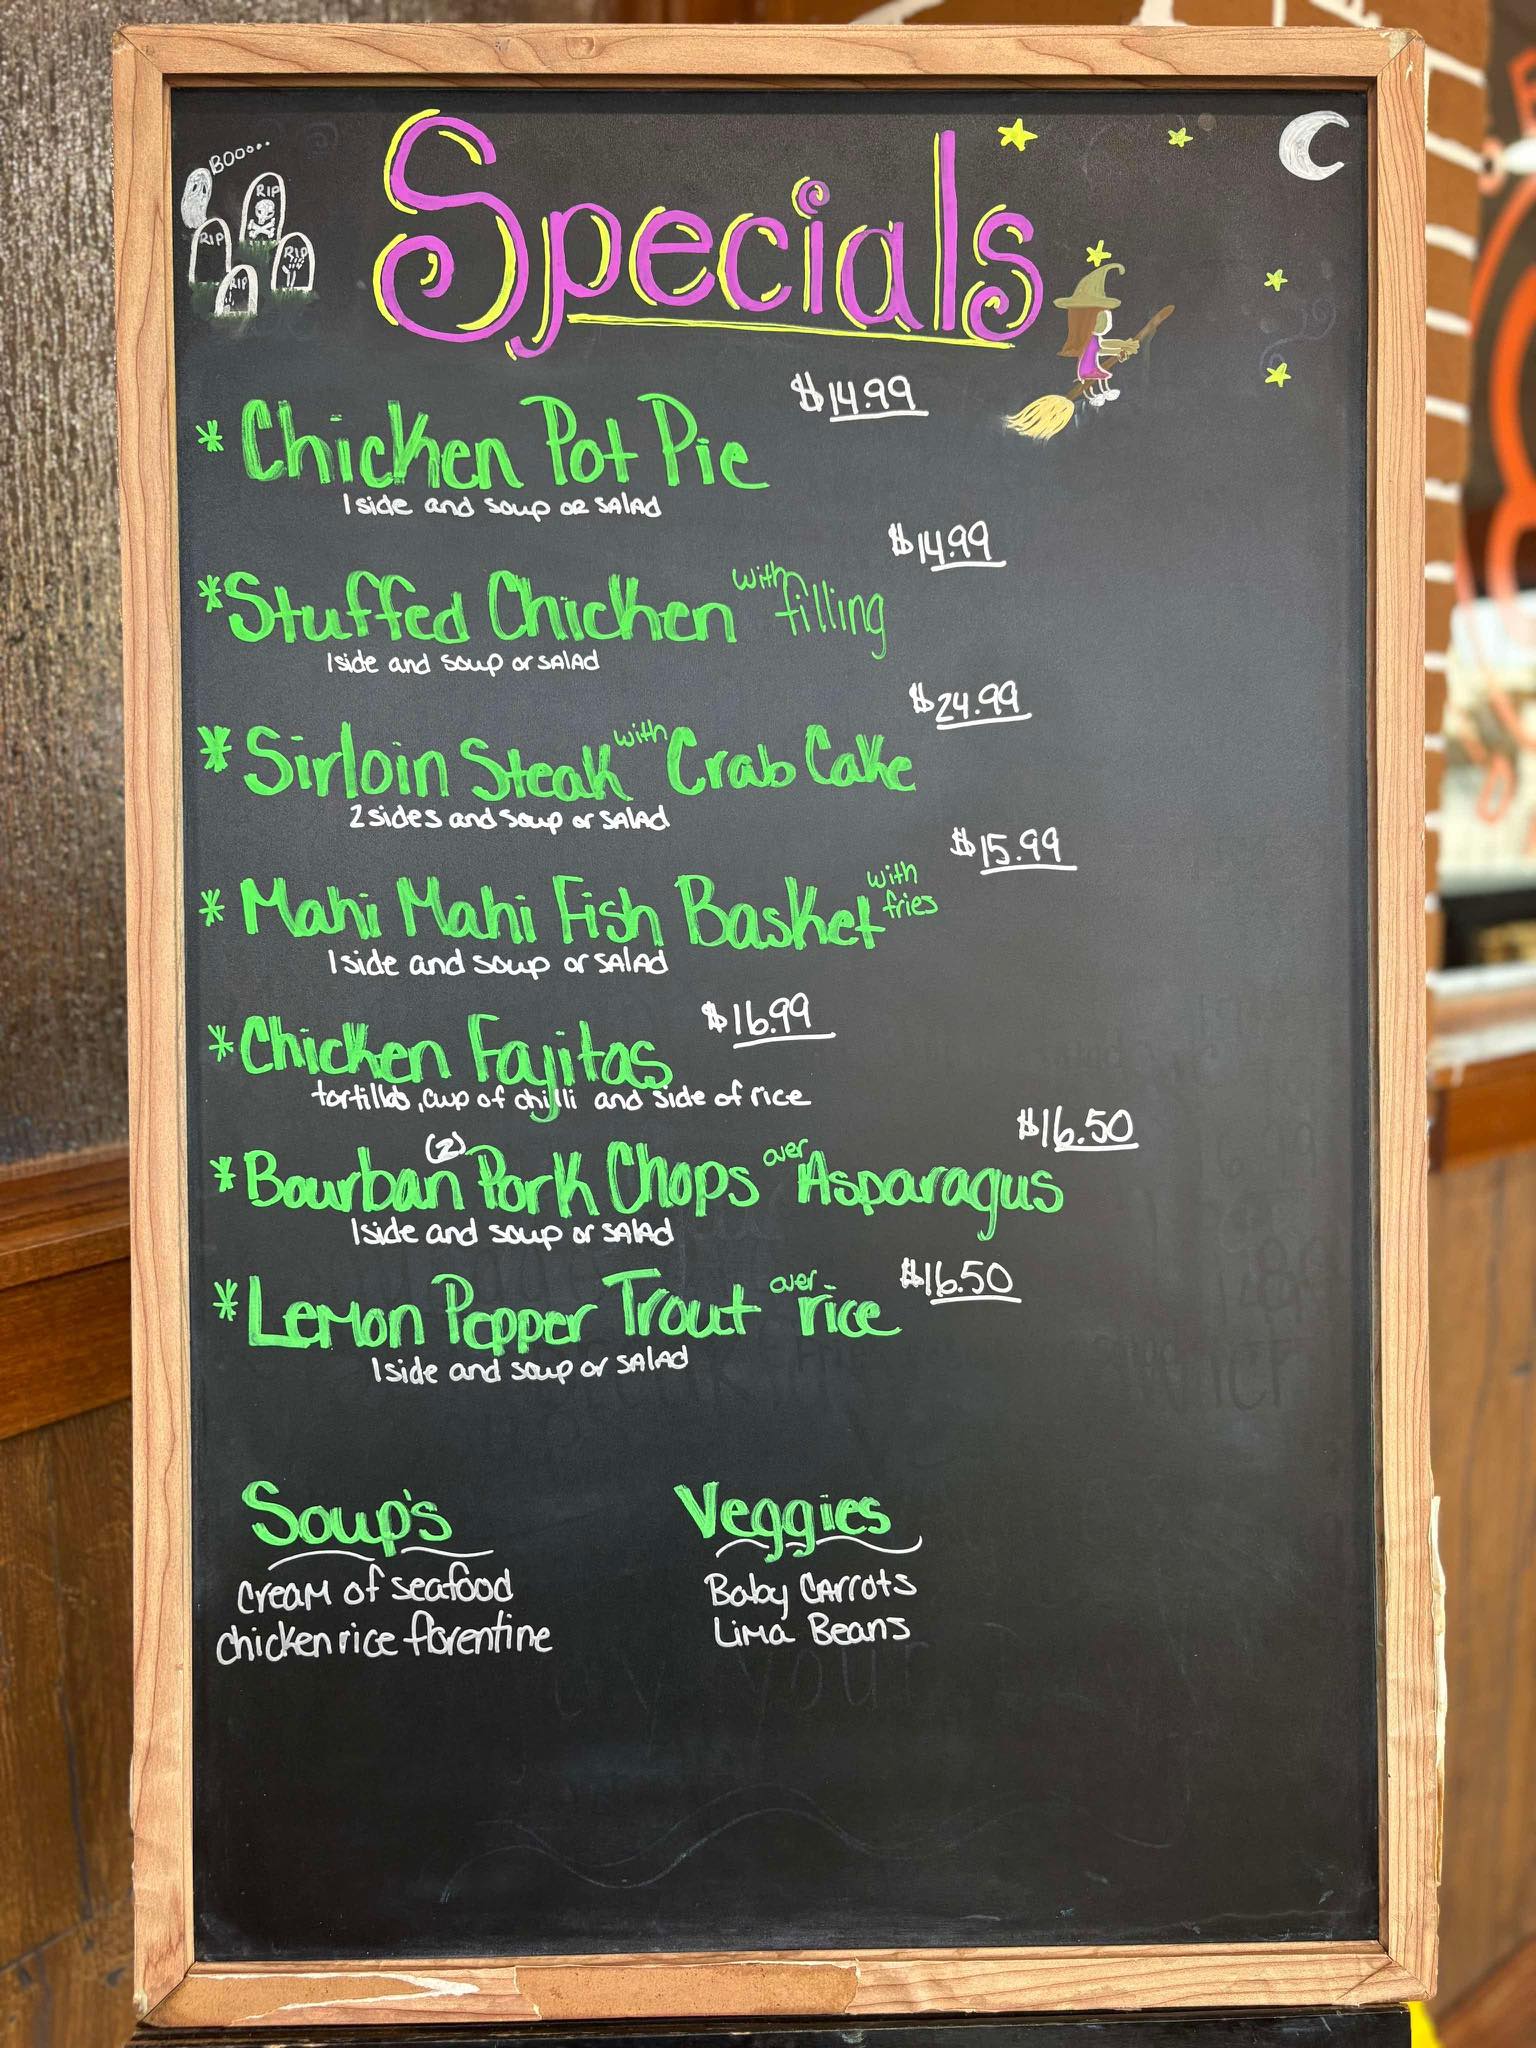 BOOO...
RIP
RIP
RIP
RIP
Specials
$14.99
*Chicken Pot Pie
1 side and soup or salad
$14.99
*Stuffed Chicken with filling
1 side and soup or salad
$24.99
*Sirloin Steak with Crab Cake
2 sides and soup or salad
$15.99
*Mahi Mahi Fish Basket with fries
1 side and soup or salad
*Chicken Fajitas $16.99
tortillas, cup of chilli and side of rice
$16.50
*Bourban (2) Pork Chops over Asparagus
1 side and soup or salad
*Lemon Pepper Trout over rice $16.50
1 side and soup or salad
Soup's
Cream of seafood
chicken rice florentine
Veggies
Baby Carrots
Lima Beans